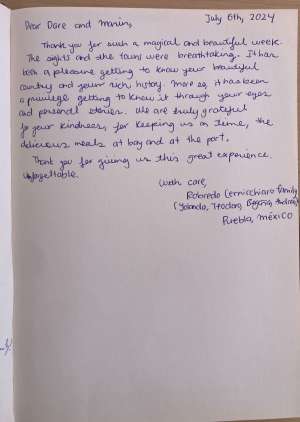 July 6th, 2024
Dear Dare and Marin,
Thank you for such a magical and beautiful week.
The sights and the tours were breathtaking. It has
been a pleasure getting to know your beautiful
country and your rich history. More so, it has been
a privilege getting to know it through your eyes
and personal stories. We are truly grateful
for your kindness, for keeping us on time, the
delicious meals at bay and at the port.
Thank you for giving us this great experience.
Unforgettable.
With care,
Robredo Cernicchiaro family
(Yolanda, Teodoro, Begoña, Andrea)
Puebla, México